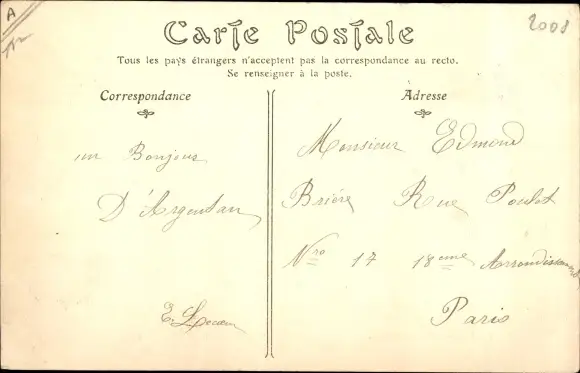 A
2008
Carte Postale
Tous les pays étrangers n'acceptent pas la correspondance au recto.
Se renseigner à la poste.
Correspondance
un Bonjour
D'Argentan
E. Lecœur
Adresse
Monsieur Edmond
Brière Rue Poulet
Nro 17 18eme Arrondissement
Paris